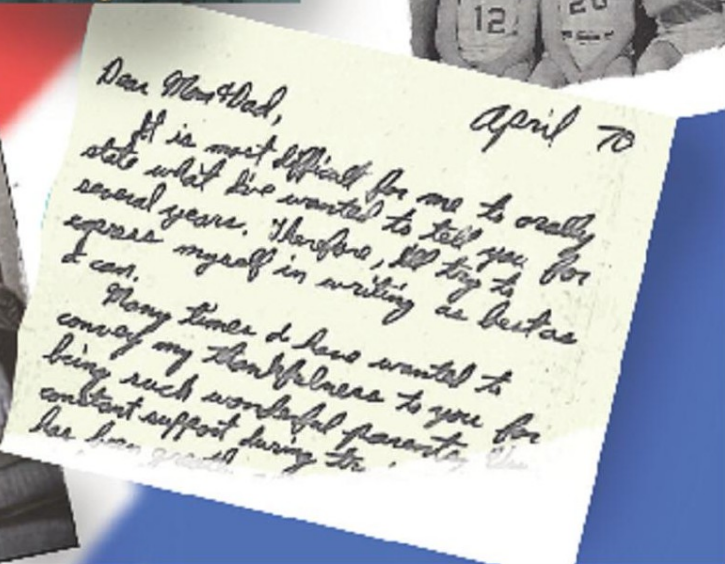 12
20
April 70
Dear Mom & Dad,
It is most difficult for me to orally
state what I've wanted to tell you for
several years. Therefore, I'll try to
express myself in writing as best as
I can.
Many times I have wanted to
convey my thankfulness to you for
being such wonderful parents,
constant support during
has been